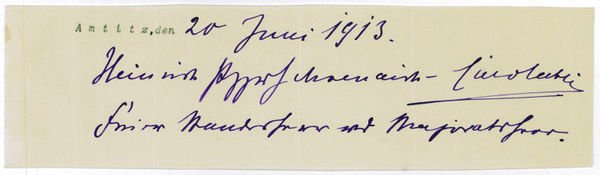 Amtitz,den 20 Juni 1913.
Heinrich Schoenaich-Carolath
Freier Standesherr und Majoratsherr.